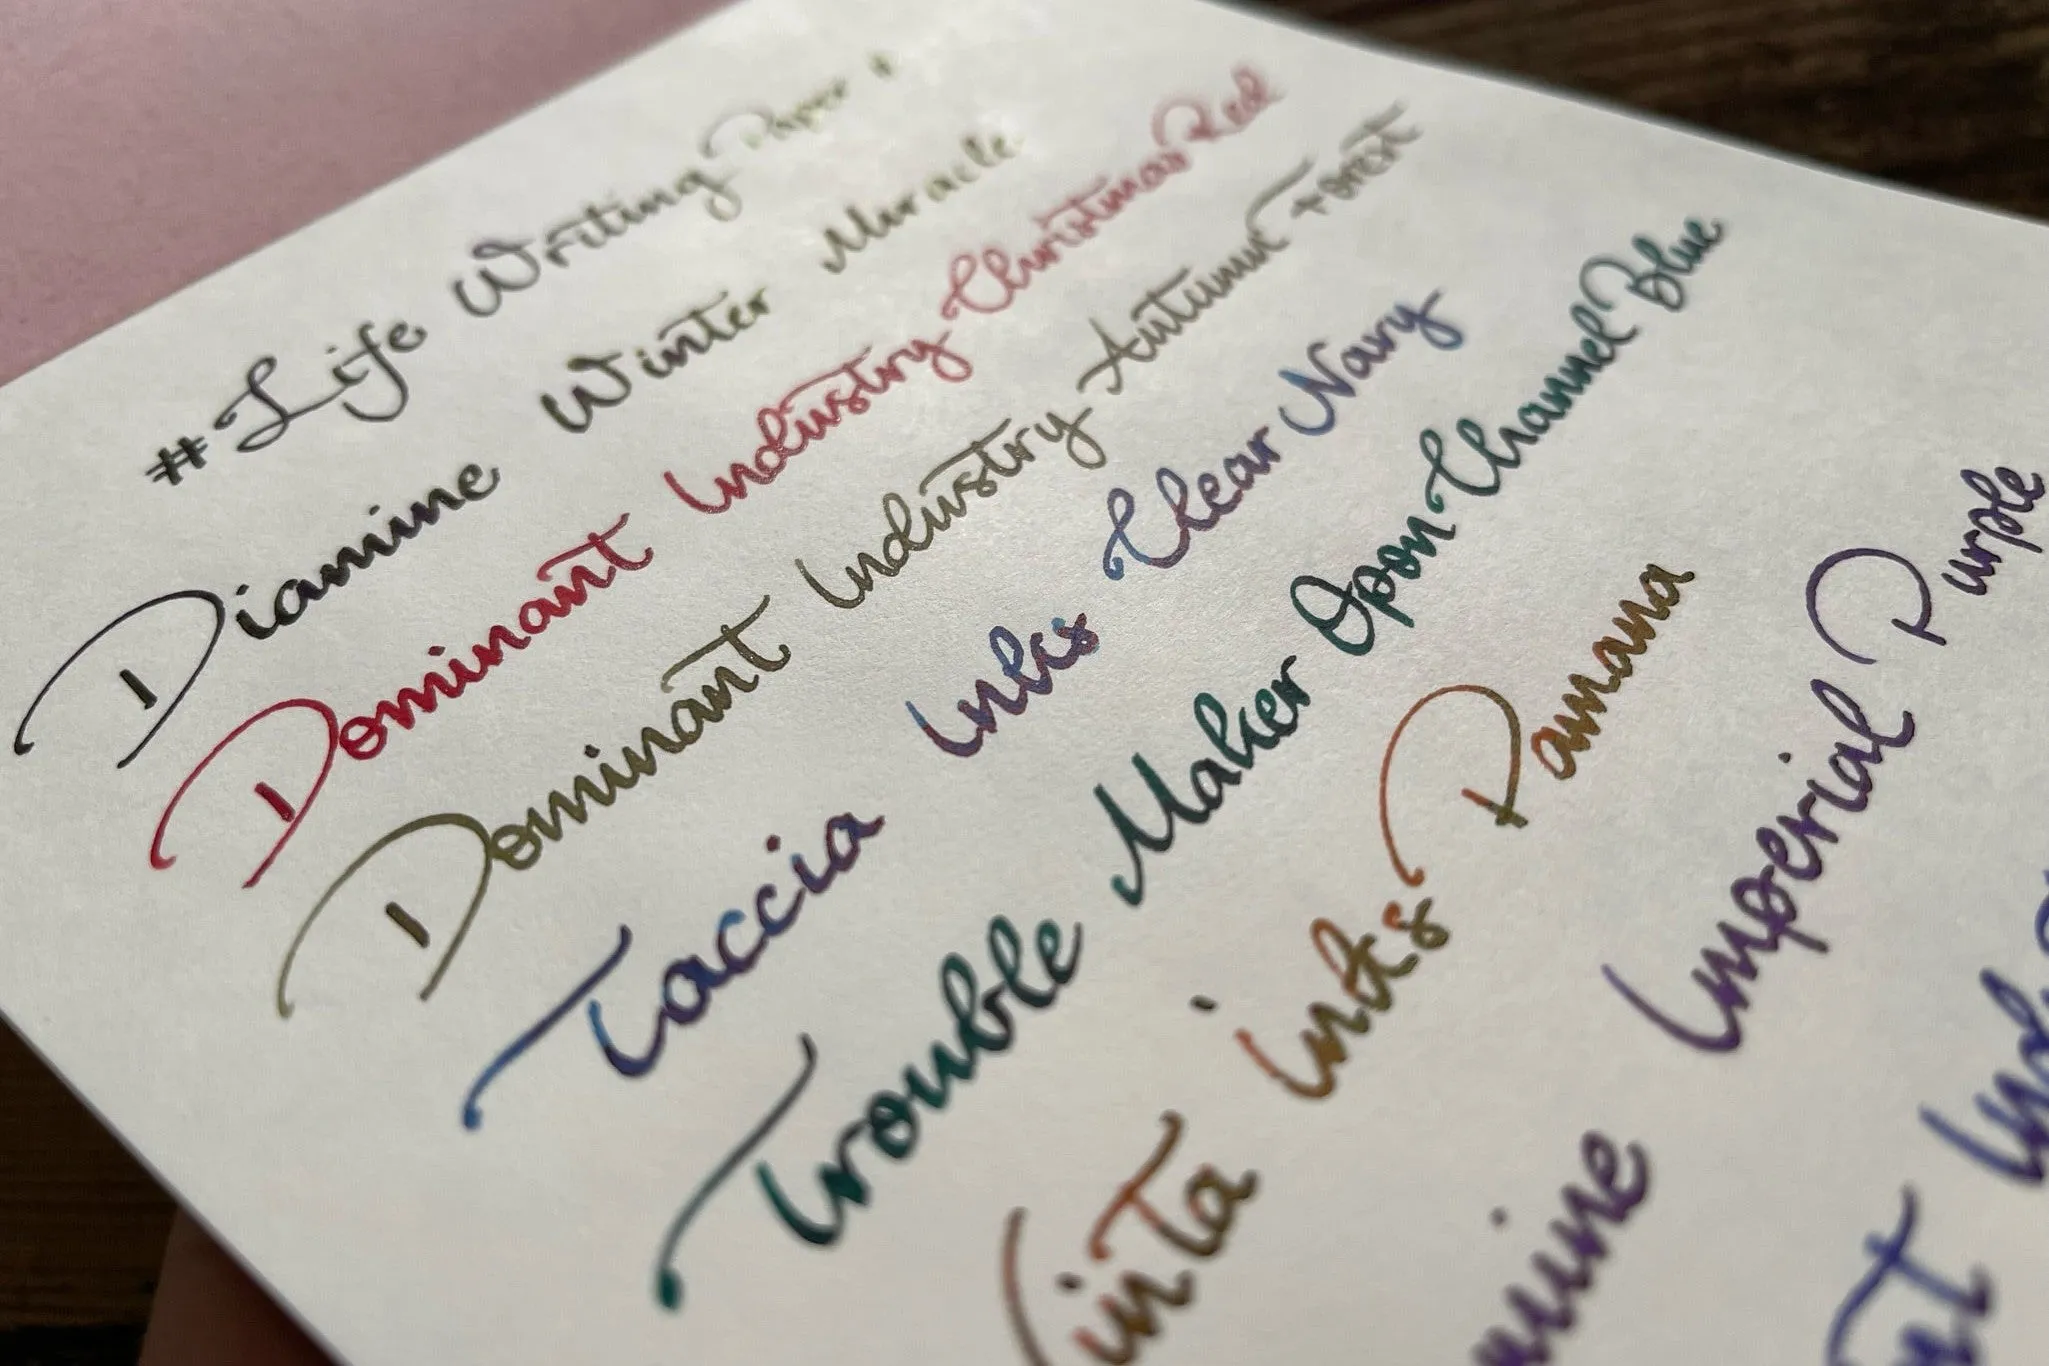 # Life Writing Paper #
Diamine Winter Miracle
Dominant Industry Christmas Red
Dominant Industry Autumn Forest
Taccia Inks Clear Navy
Trouble Maker Opon Channel Blue
inta inks Panama
mine Imperial Purple
nt Ind